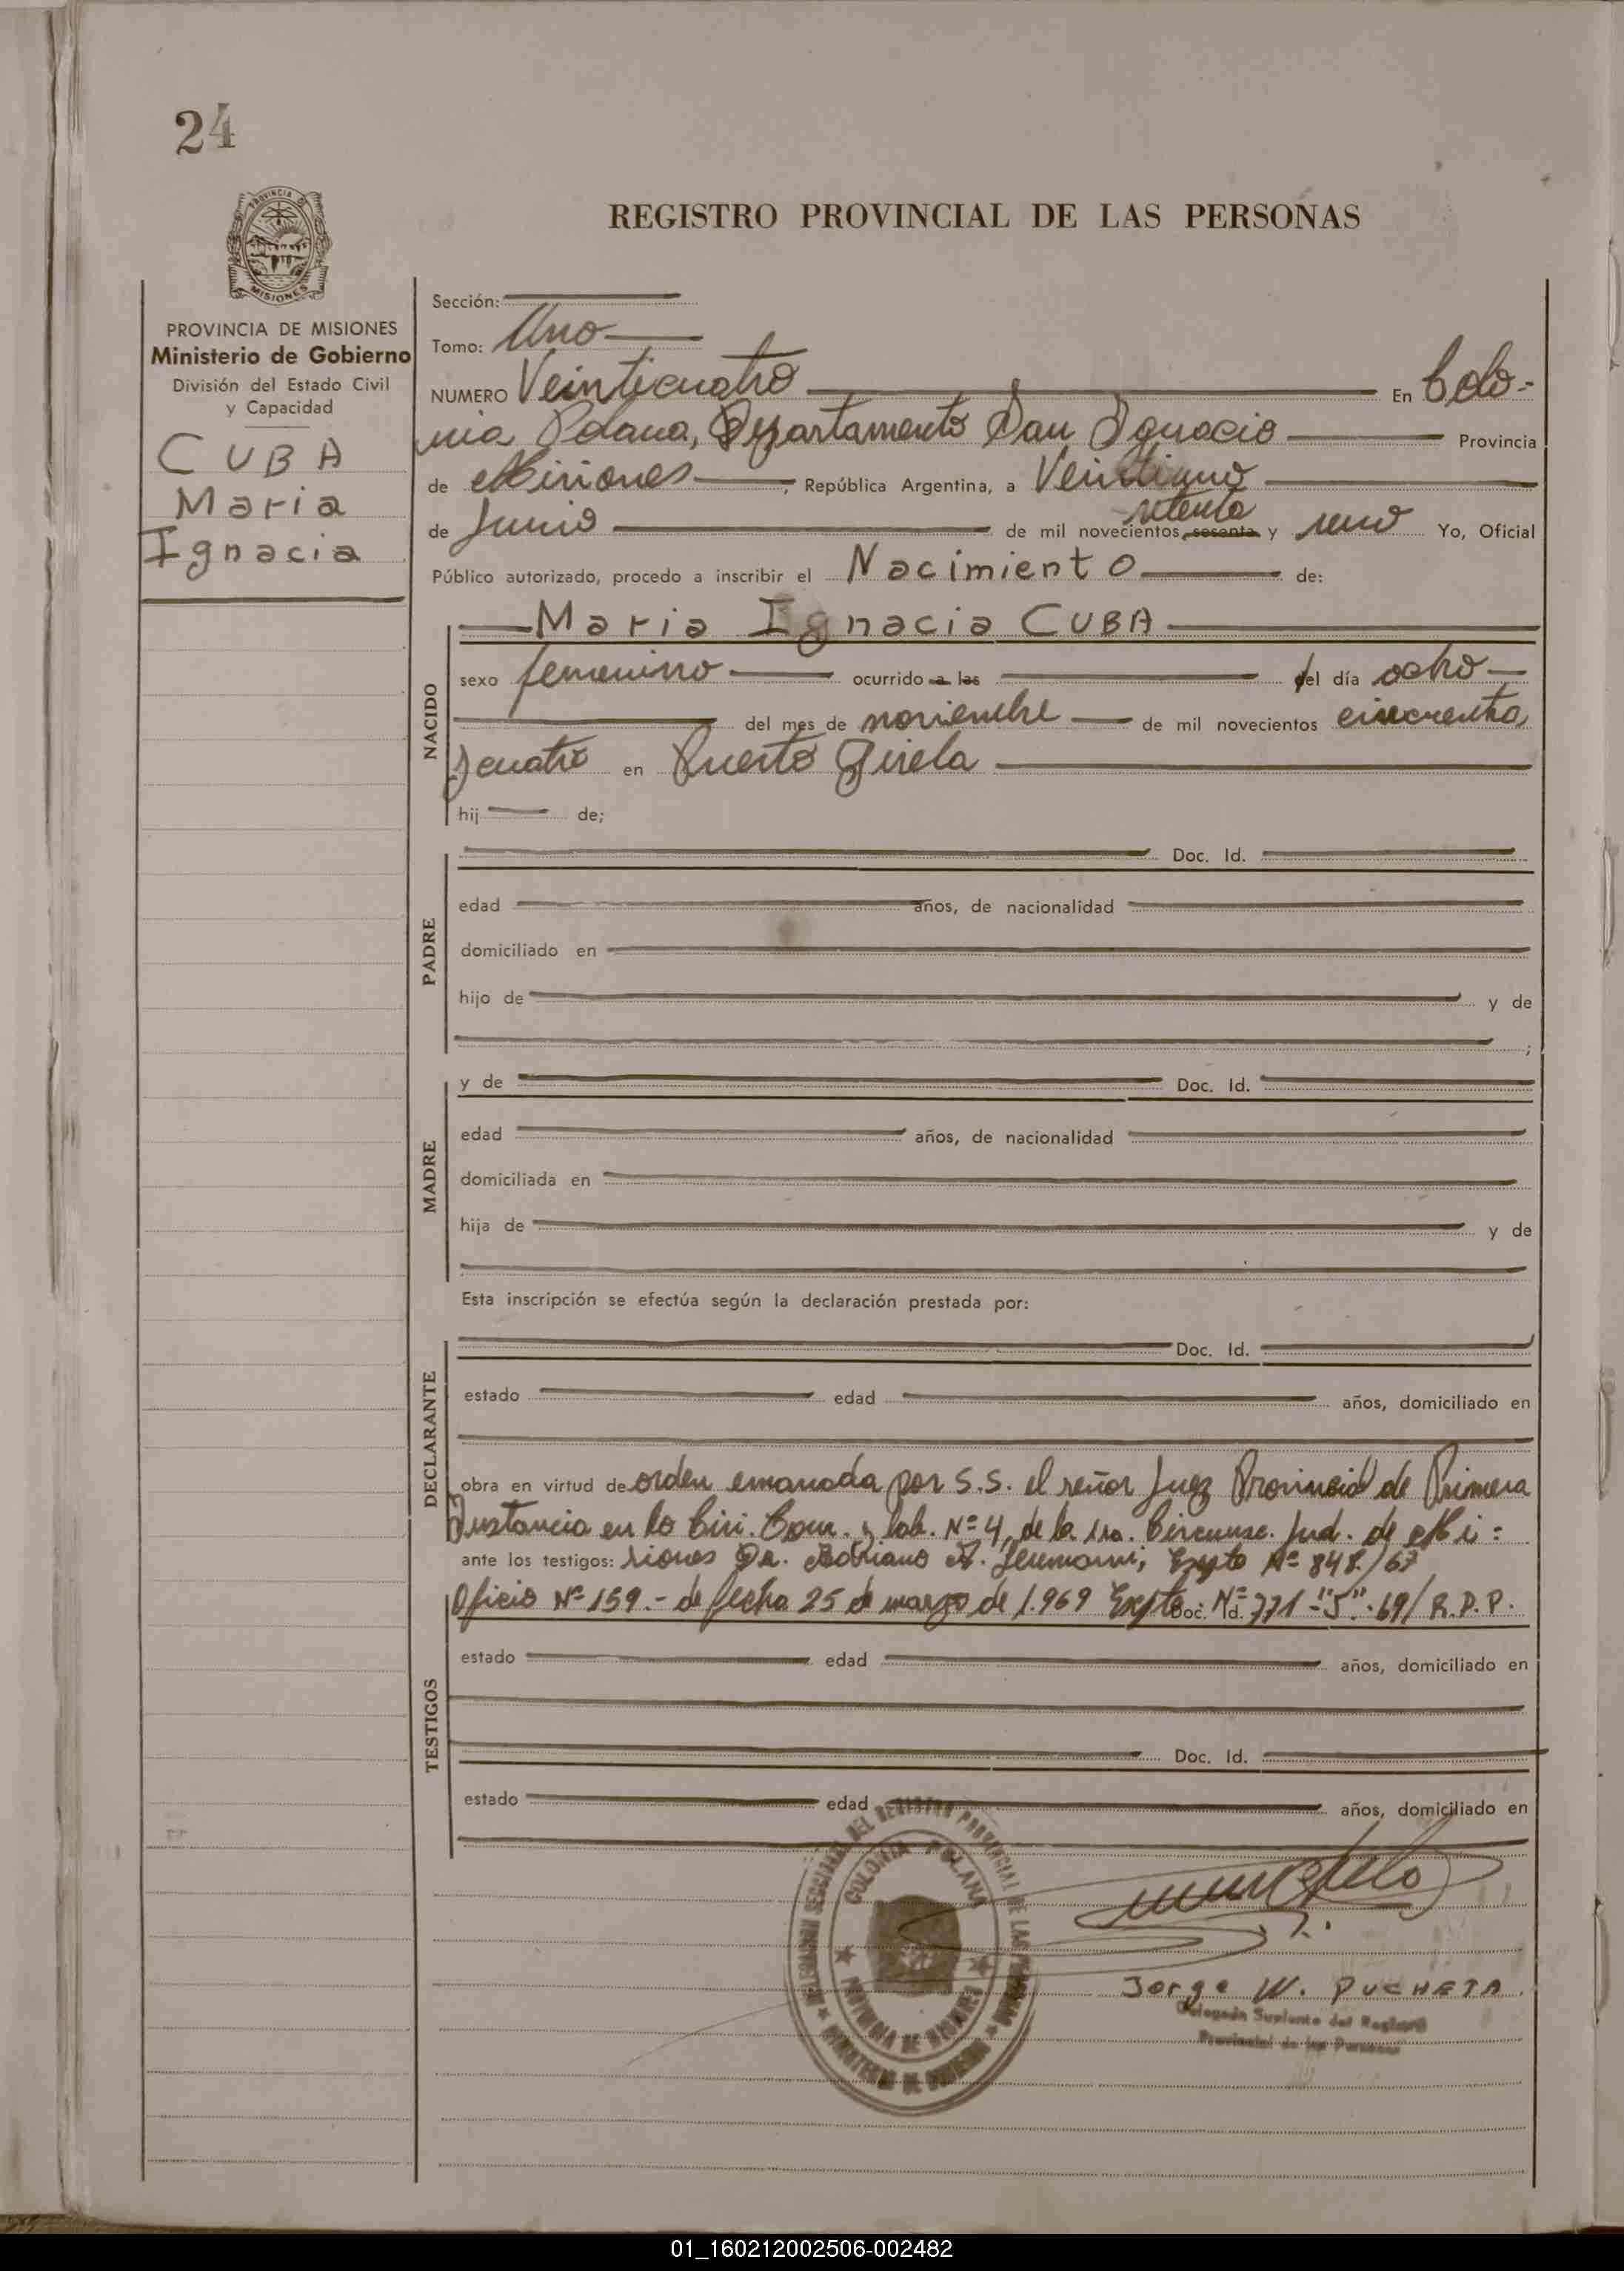 24
PROVINCIA
MISIONES
REGISTRO PROVINCIAL DE LAS PERSONAS
PROVINCIA DE MISIONES
Ministerio de Gobierno
División del Estado Civil
y Capacidad
CUBA
Maria
Ignacia
Sección:
Tomo: Uno
NUMERO Veinticuatro En Colo=
nia Polana, Departamento San Ignacio Provincia
de Misiones, República Argentina, a Veintiuno
setenta
de Junio de mil novecientos sesenta y uno Yo, Oficial
Público autorizado, procedo a inscribir el Nacimiento de:
Maria Ignacia CUBA
NACIDO
sexo femenino ocurrido a las del día ocho
del mes de noviembre de mil novecientos cincuenta
y cuatro en Puerto Gisela
hij de;
PADRE
Doc. Id.
edad años, de nacionalidad
domiciliado en
hijo de y de
;
MADRE
y de Doc. Id.
edad años, de nacionalidad
domiciliada en
hija de y de
Esta inscripción se efectúa según la declaración prestada por:
DECLARANTE
Doc. Id.
estado edad años, domiciliado en
obra en virtud de orden emanada por S.S. el señor Juez Provincial de Primera
Instancia en lo Civi. Com. y lab. Nº 4, de la 1ra. Circunsc. Jud. de Mi=
ante los testigos: siones Dr. A. Expte Nº 848/67
Oficio Nº 159.- de fecha 25 de marzo de 1.969 Expte Doc. Id. Nº 771-"J"-69/R.P.P.
TESTIGOS
estado edad años, domiciliado en
Doc. Id.
estado edad años, domiciliado en
DEL REGISTRO PROVINCIAL DE LAS
COLONIA POLANA
PROVINCIA DE MISIONES
MINISTERIO DE GOBIERNO
Jorge W. PUCHETA.
Delegado Suplente del Registro
Provincial de las Personas
01_160212002506-002482